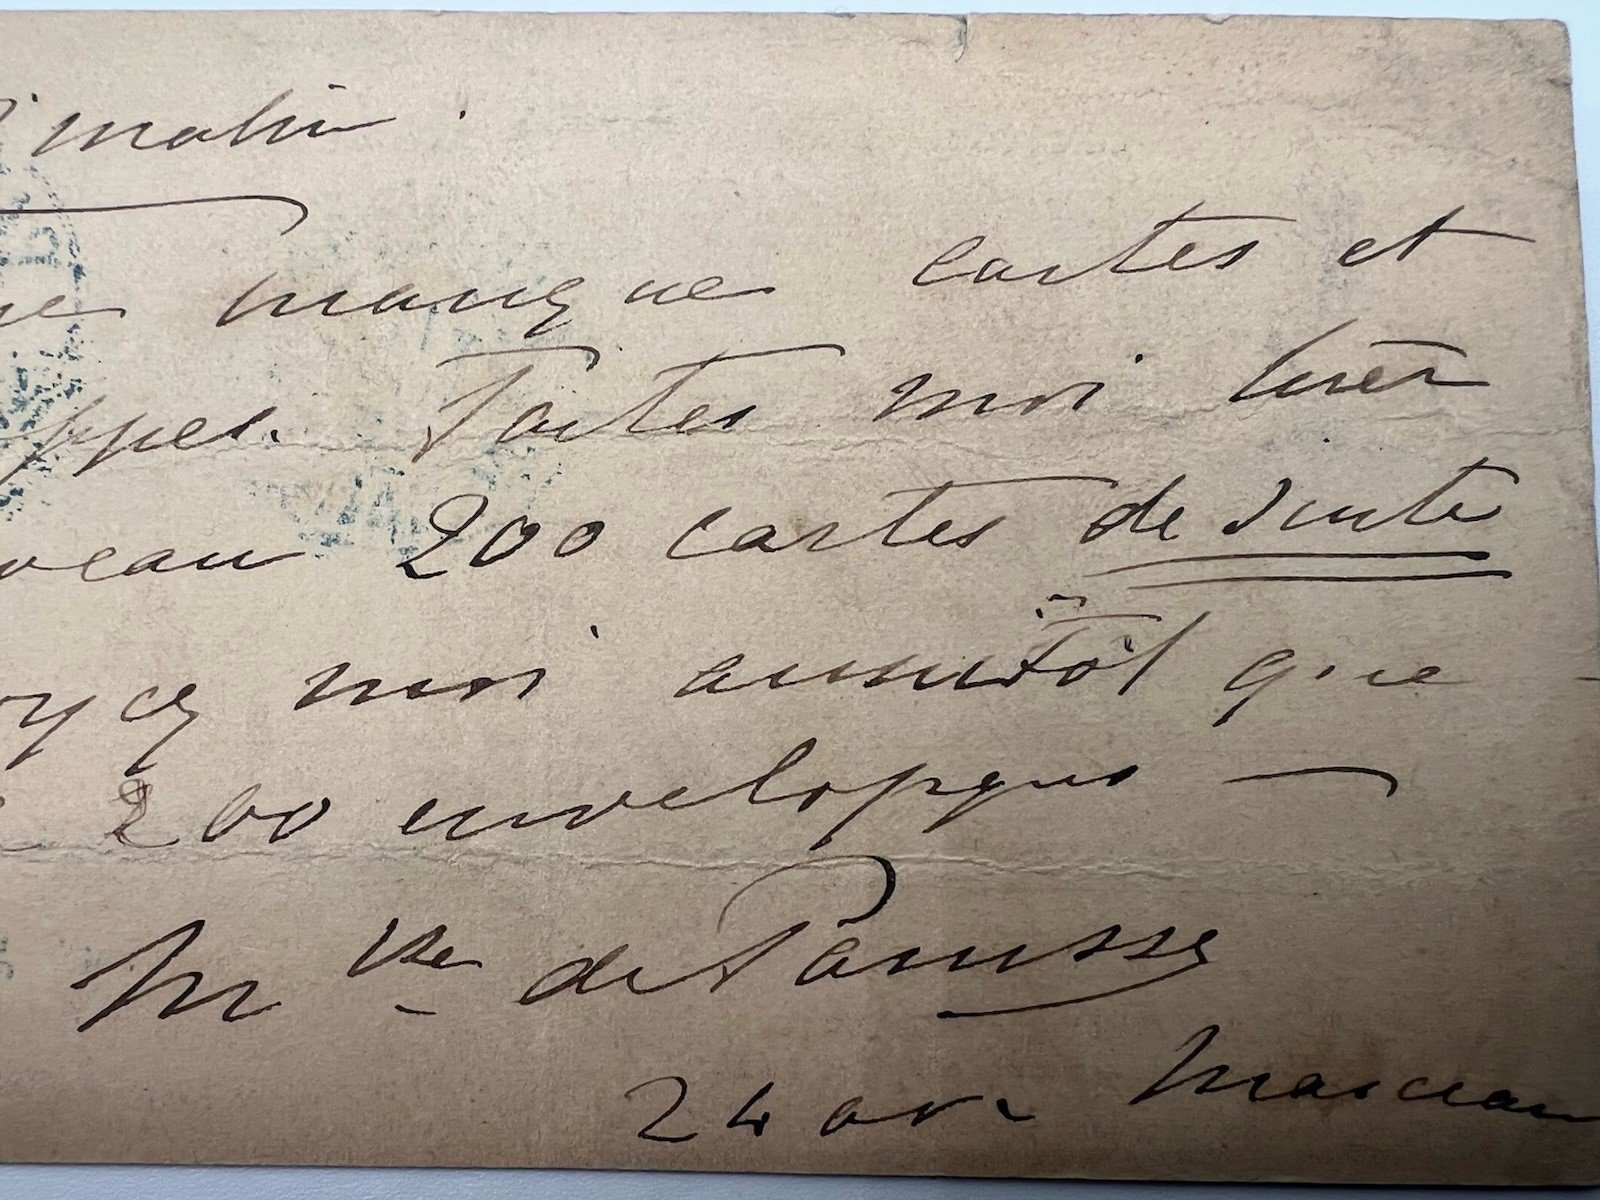 matin
manque cartes et
ppes. Faites moi tirer
veau 200 cartes de suite
yez moi aussitôt que
200 enveloppes —
M Vve de
24 av. Marceau